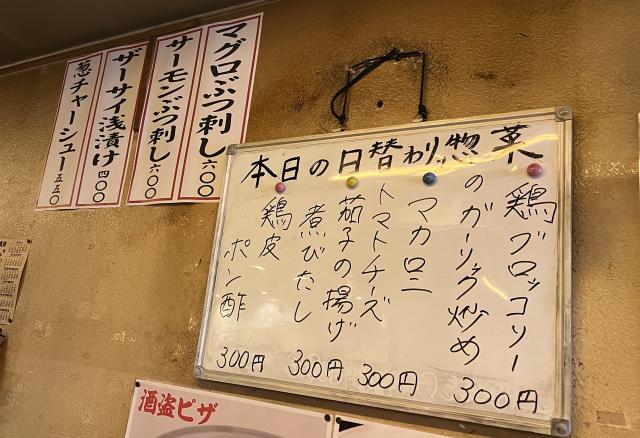 マグロぶつ刺し 六〇〇
サーモンぶつ刺し 六〇〇
ザーサイ浅漬け 四〇〇
葱チャーシュー 五五〇
本日の日替わり惣菜
鶏ブロッコリー
のガーリック炒め
300円
マカロニ
トマトチーズ
300円
茄子の揚げ
煮びたし
300円
鶏皮
ポン酢
300円
酒盗ピザ